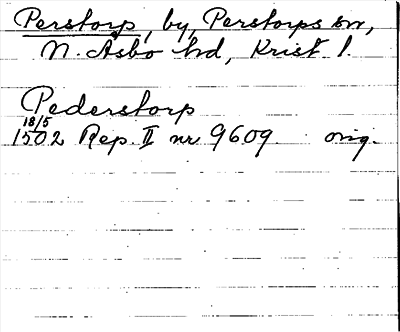 Perstorp, by, Perstorps sn,
N. Åsbo hd, Krist l.
Pederstorp
18/5
1502 Rep. II nr 9609. orig.